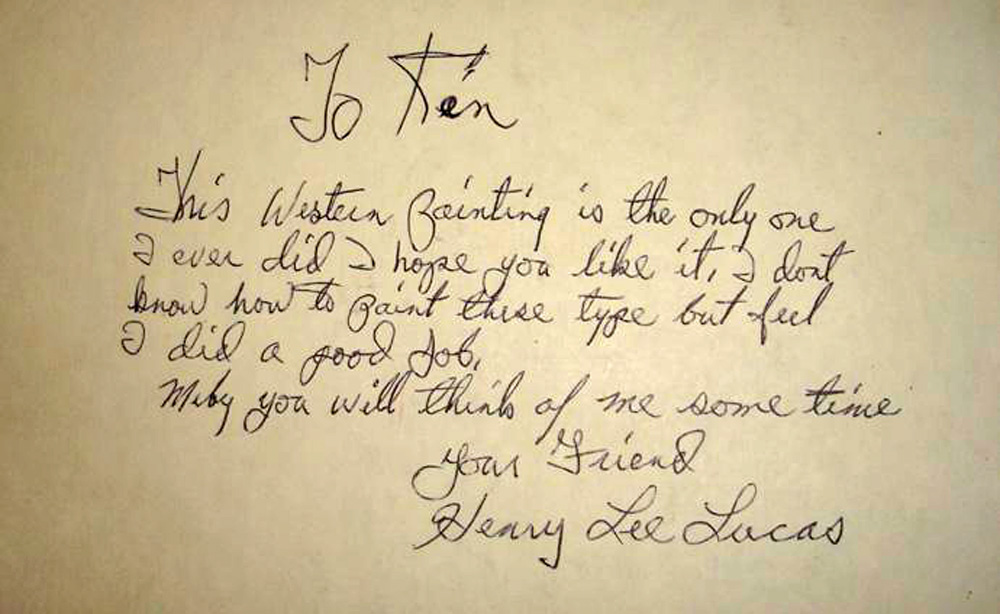 To Ken
This Western Painting is the only one
I ever did I hope you like it, I dont
know how to paint these type but feel
I did a good Job,
Meby you will think of me some time
your Friend
Henry Lee Lucas